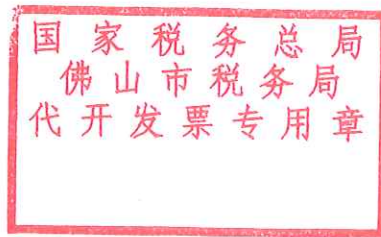 国家税务总局
佛山市税务局
代开发票专用章